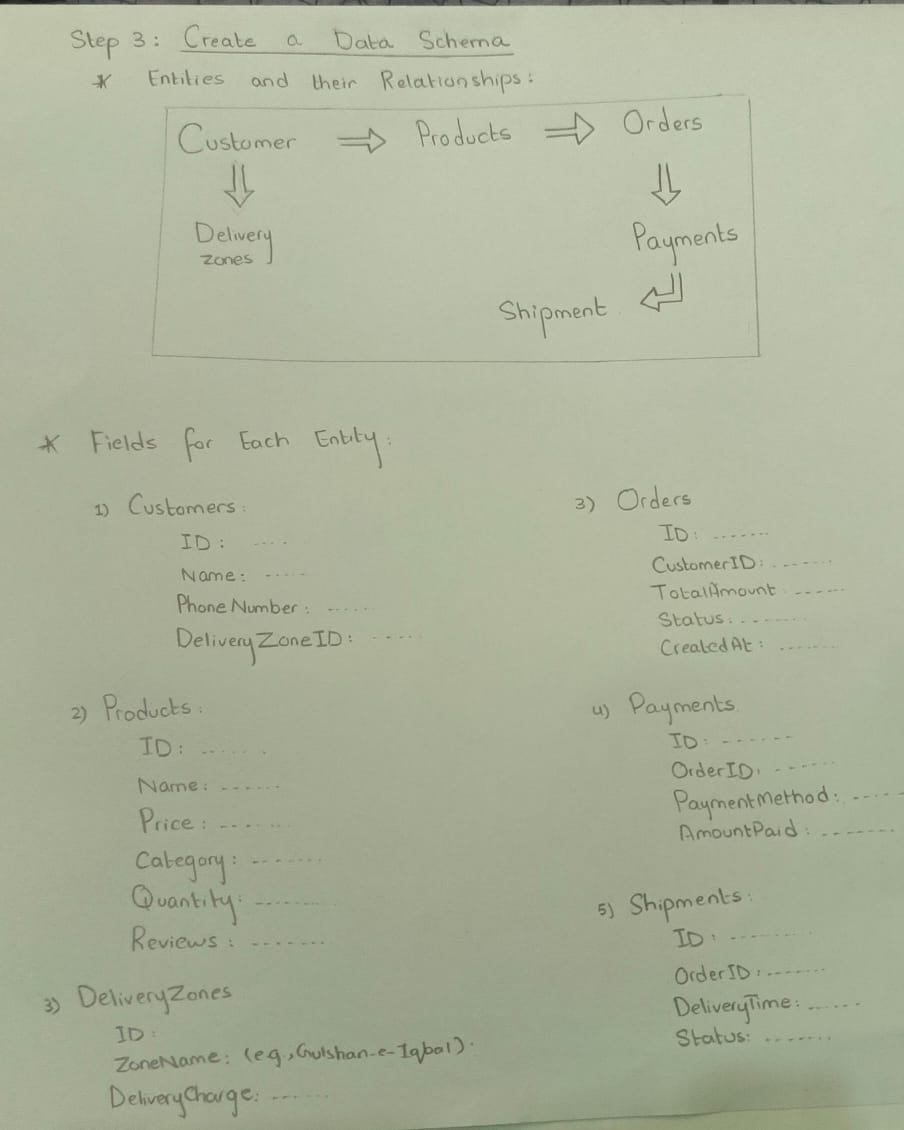 Step 3: Create a Data Schema
* Entities and their Relationships:
Customer ⇒ Products ⇒ Orders
⇓ ⇓
Delivery zones
Payments
Shipment
* Fields for Each Entity:
1) Customers:
ID: ....
Name: .....
PhoneNumber: .....
DeliveryZoneID: .....
2) Products:
ID: .......
Name: ......
Price: .......
Category: ........
Quantity: .........
Reviews: ........
3) DeliveryZones
ID:
ZoneName: (e.g., Gulshan-e-Iqbal).
DeliveryCharge: ......
3) Orders
ID: .......
CustomerID: .......
TotalAmount ......
Status: ........
CreatedAt: .......
4) Payments
ID: .......
OrderID: .......
PaymentMethod: ......
AmountPaid: ........
5) Shipments:
ID: .........
OrderID: .......
DeliveryTime: ......
Status: ........